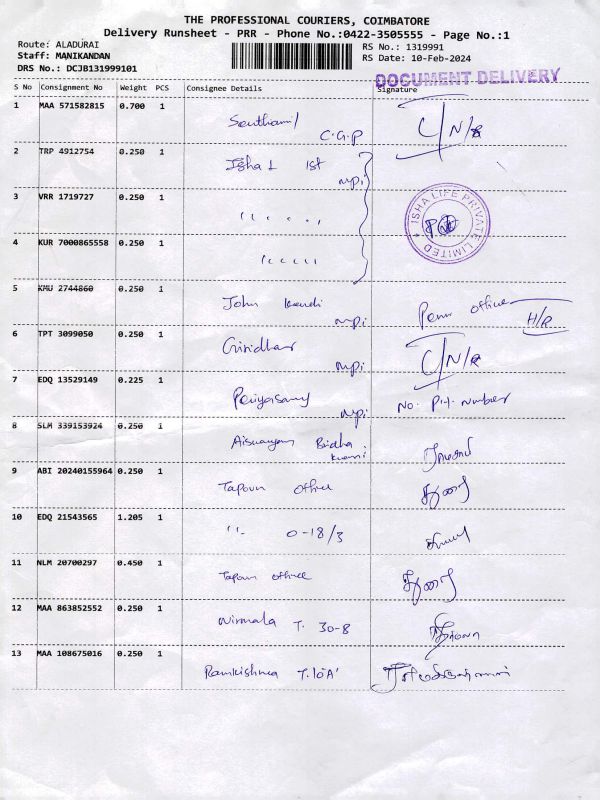 THE PROFESSIONAL COURIERS, COIMBATORE
Delivery Runsheet - PRR - Phone No.:0422-3505555 - Page No.:1
Route: ALADURAI
Staff: MANIKANDAN
DRS No.: DCJB131999101
RS No.: 1319991
RS Date: 10-Feb-2024
DOCUMENT DELIVERY
S No Consignment No Weight PCS Consignee Details Signature
1 MAA 571582815 0.700 1 Senthamil C/N/R
C.G.P
2 TRP 4912754 0.250 1 Isha L 1st
mpi
3 VRR 1719727 0.250 1 " " " "
ISHA LIFE PRIVATE LIMITED
4 KUR 7000865558 0.250 1 " " " "
5 KMU 2744860 0.250 1 John
mpi office H/R
6 TPT 3099050 0.250 1 Giridhar C/N/R
mpi
7 EDQ 13529149 0.225 1 Periyasamy No. number
mpi
8 SLM 339153924 0.250 1
9 ABI 20240155964 0.250 1 office
10 EDQ 21543565 1.205 1 " 0-18/3
11 NLM 20700297 0.450 1 office
12 MAA 863852552 0.250 1 Nirmala T. 30-8
13 MAA 108675016 0.250 1 Ramkishna T.10'A'